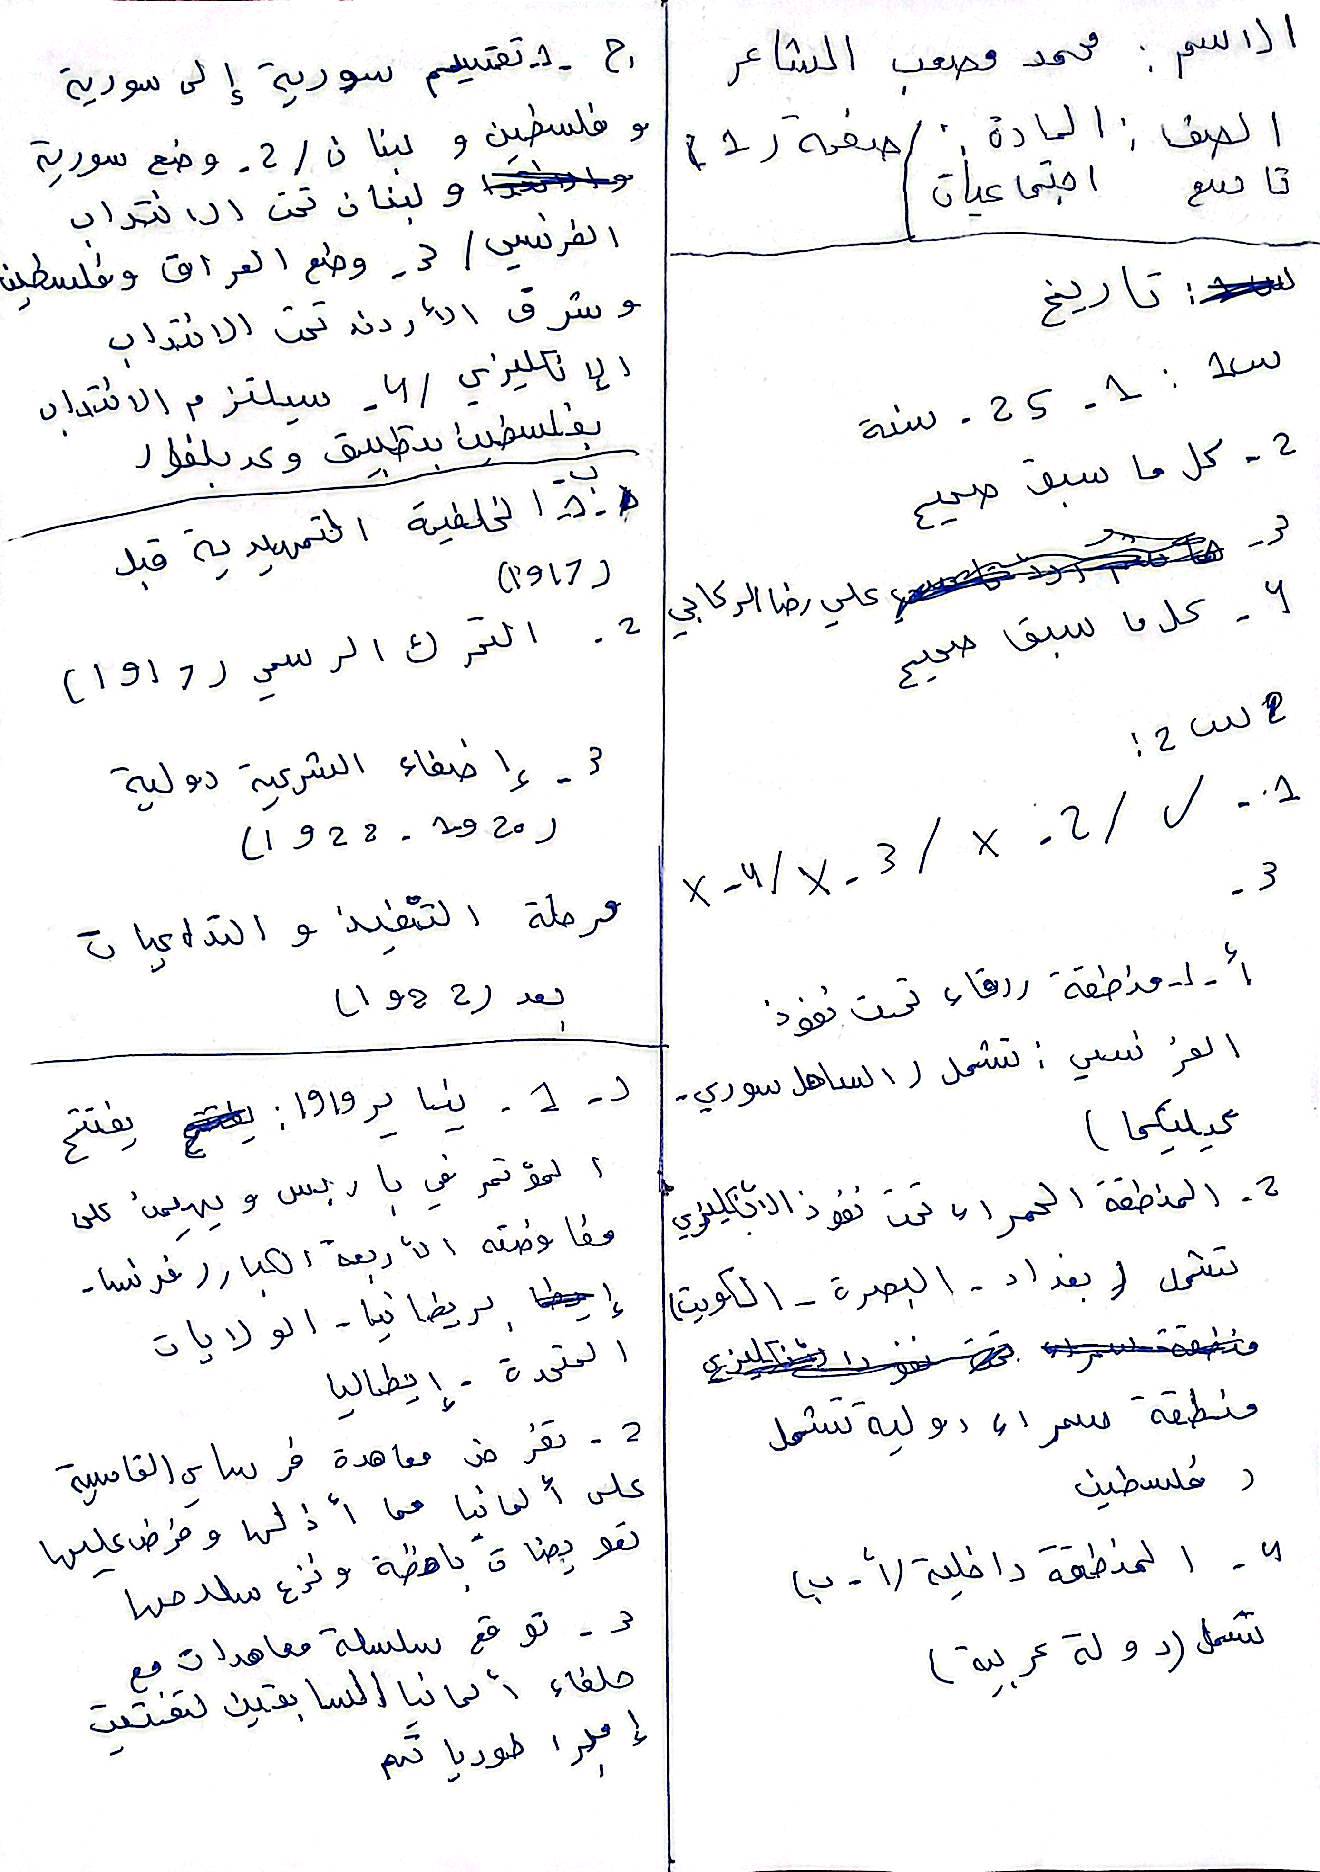 الاسم : محمد مصعب الشاعر
الصف : المادة : / صفحة (1)
تاسع اجتماعيات
: تاريخ
س1 : 1 - 25 - سنة
2 - كل ما سبق صحيح
3 - علي رضا الركابي
4 - كل ما سبق صحيح
س2 :
1 - ✓ / 2 - x / 3 - x / 4 - x
3 -
أ - 1 - منطقة زرقاء تحت نفوذ
الفرنسي : تشمل ( الساهل سوري -
كيليكيا )
2 - المنطقة الحمراء تحت نفوذ الانكليزي
تشمل ( بغداد - البصرة - الكويت )
منطقة سمراء دولية تشمل
( فلسطين
4 - المنطقة داخلية (أ - ب)
تشمل (دولة عربية )
ج - 1 - تقسيم سورية إلى سورية
و فلسطين و لبنان / 2 - وضع سورية
و لبنان تحت الانتداب
الفرنسي / 3 - وضع العراق وفلسطين
وشرق الأردن تحت الانتداب
الإنكليزي / 4 - سيلتزم الانتداب
بفلسطين بتطبيق وعد بلفور
ب -
1 - الخلفية التمهيدية قبل
(1917)
2 - التحرك الرسمي (1917)
3 - إضفاء الشرعية دولية
(1920 - 1922)
مرحلة التنفيذ و التداعيات
بعد (1922)
د - 1 - يناير 1919 : يفتتح
المؤتمر في باريس ويهيمن على
مفاوضته الأربعة الكبار ( فرنسا -
بريطانيا - الولايات
المتحدة - إيطاليا
2 - تفرض معاهدة فرساي القاسية
على ألمانيا مما أذلها وفرض عليها
تعويضات باهظة ونزع سلاحها
3 - توقع سلسلة معاهدات مع
حلفاء ألمانيا السابقين لتفتيت
إمبراطورياتهم